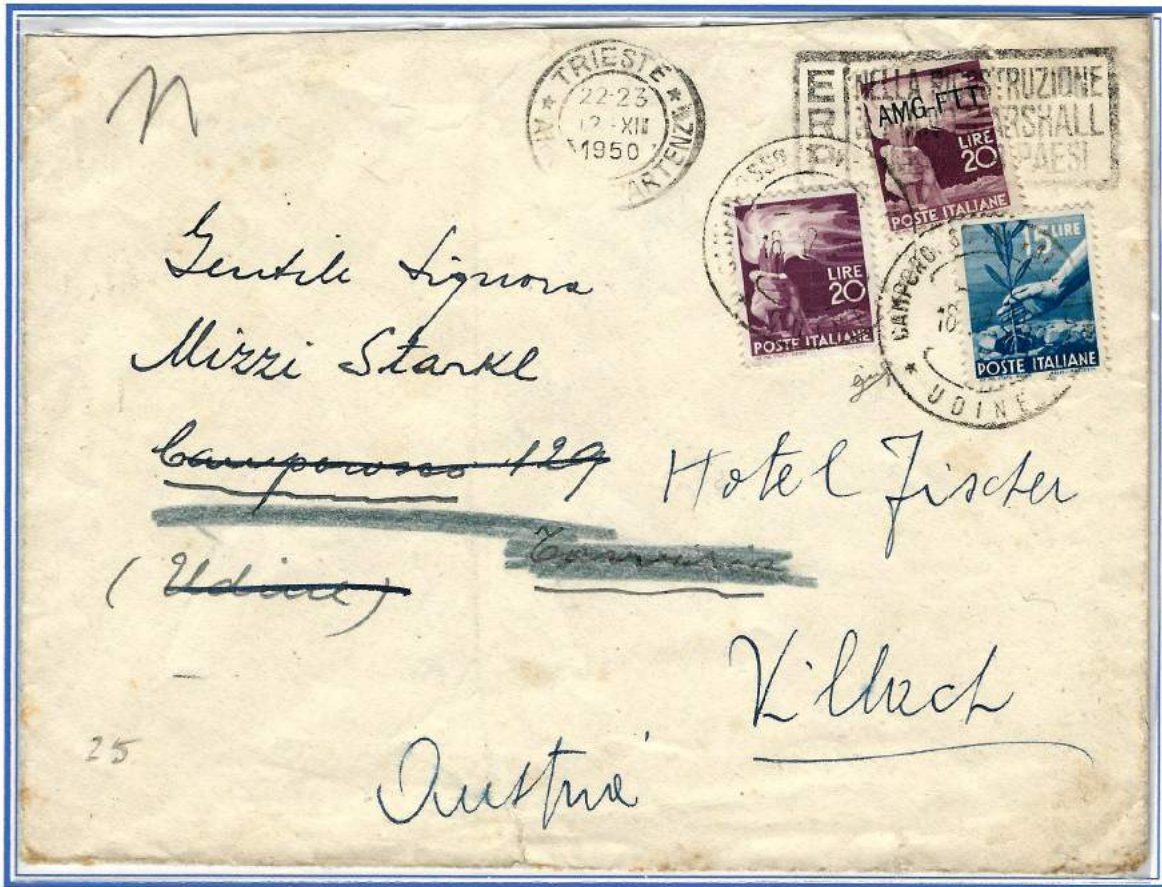 n
★ TRIESTE ★
22-23
12-XII
1950
ARTENZ
E NELLA RICOSTRUZIONE
R MARSHALL
PAESI
AMG-FTT
LIRE
20
POSTE ITALIANE
LIRE
20
POSTE ITALIANE
15 LIRE
POSTE ITALIANE
CAMPOROSSO
★ UDINE
18
Gentile Signora
Mizzi Starkl
Camporosso 129
Hotel Fischer
Tarvisio
(Udine)
Villach
Austria
25